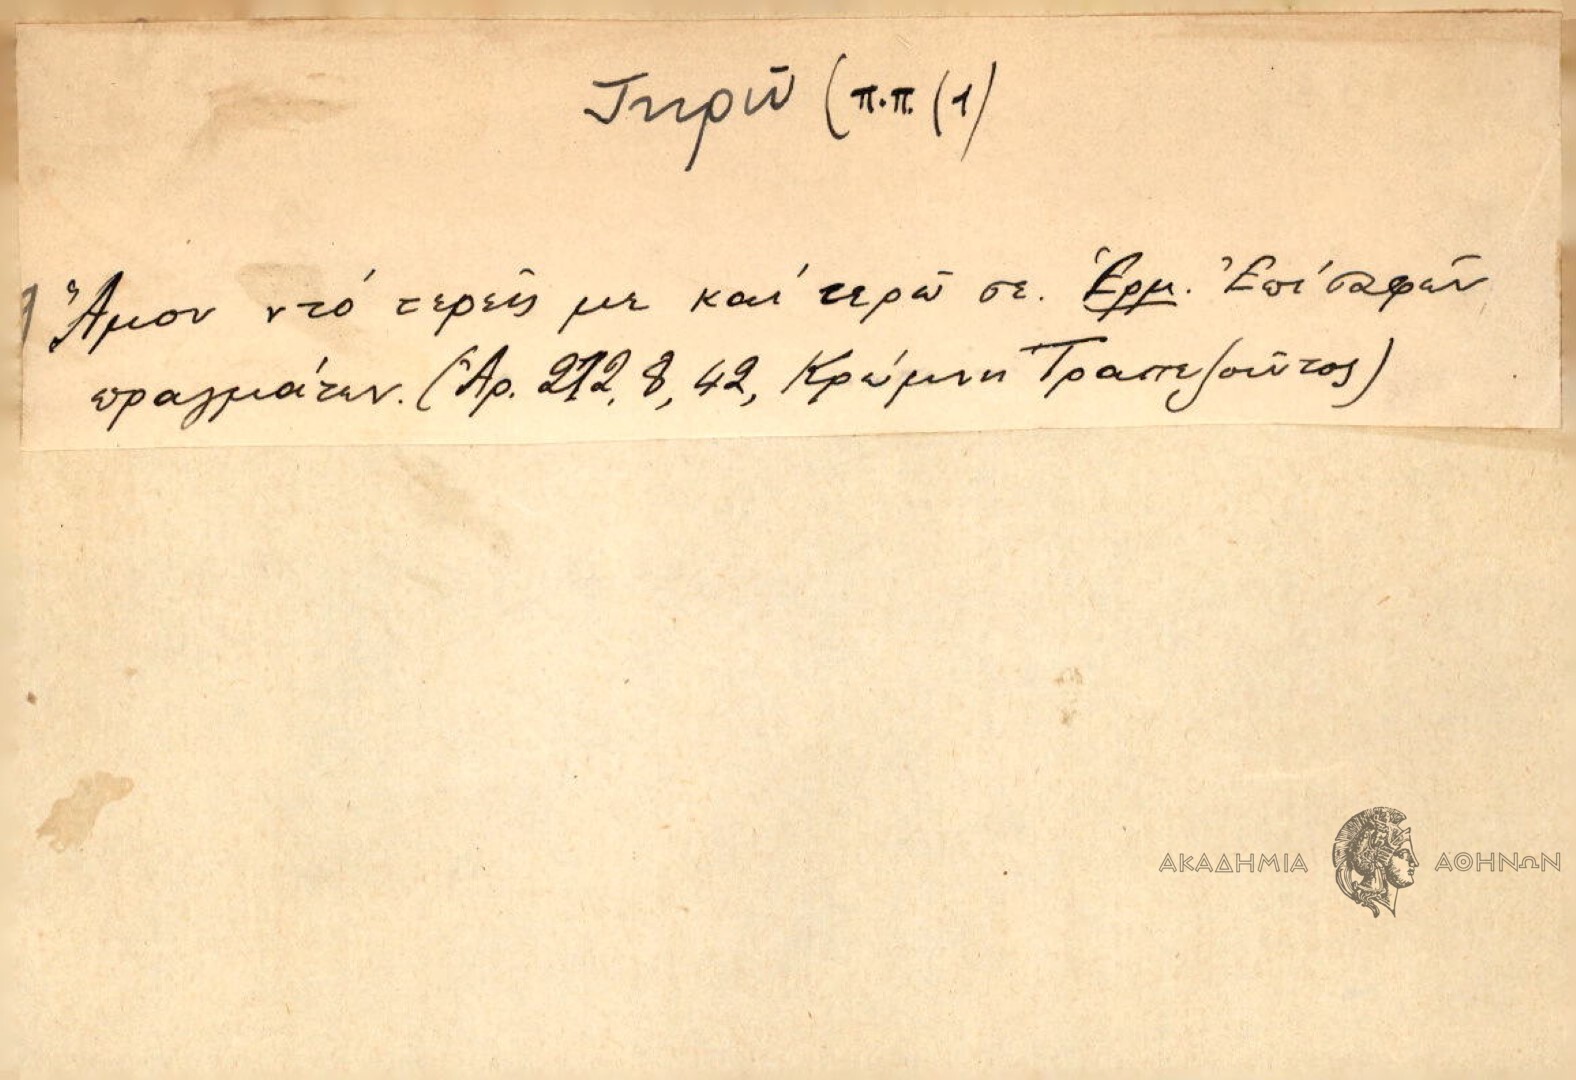 Τηρῶ (π.π (1)
Ἄμον ντό τερεῖς με καί τερῶ σε. Ἑρμ. Ἐπί σαφῶν
πραγμάτων. (Ἀρ. 212, 8, 42, Κρώμνη Τραπεζοῦντος)
ΑΚΑΔΗΜΙΑ ΑΘΗΝΩΝ